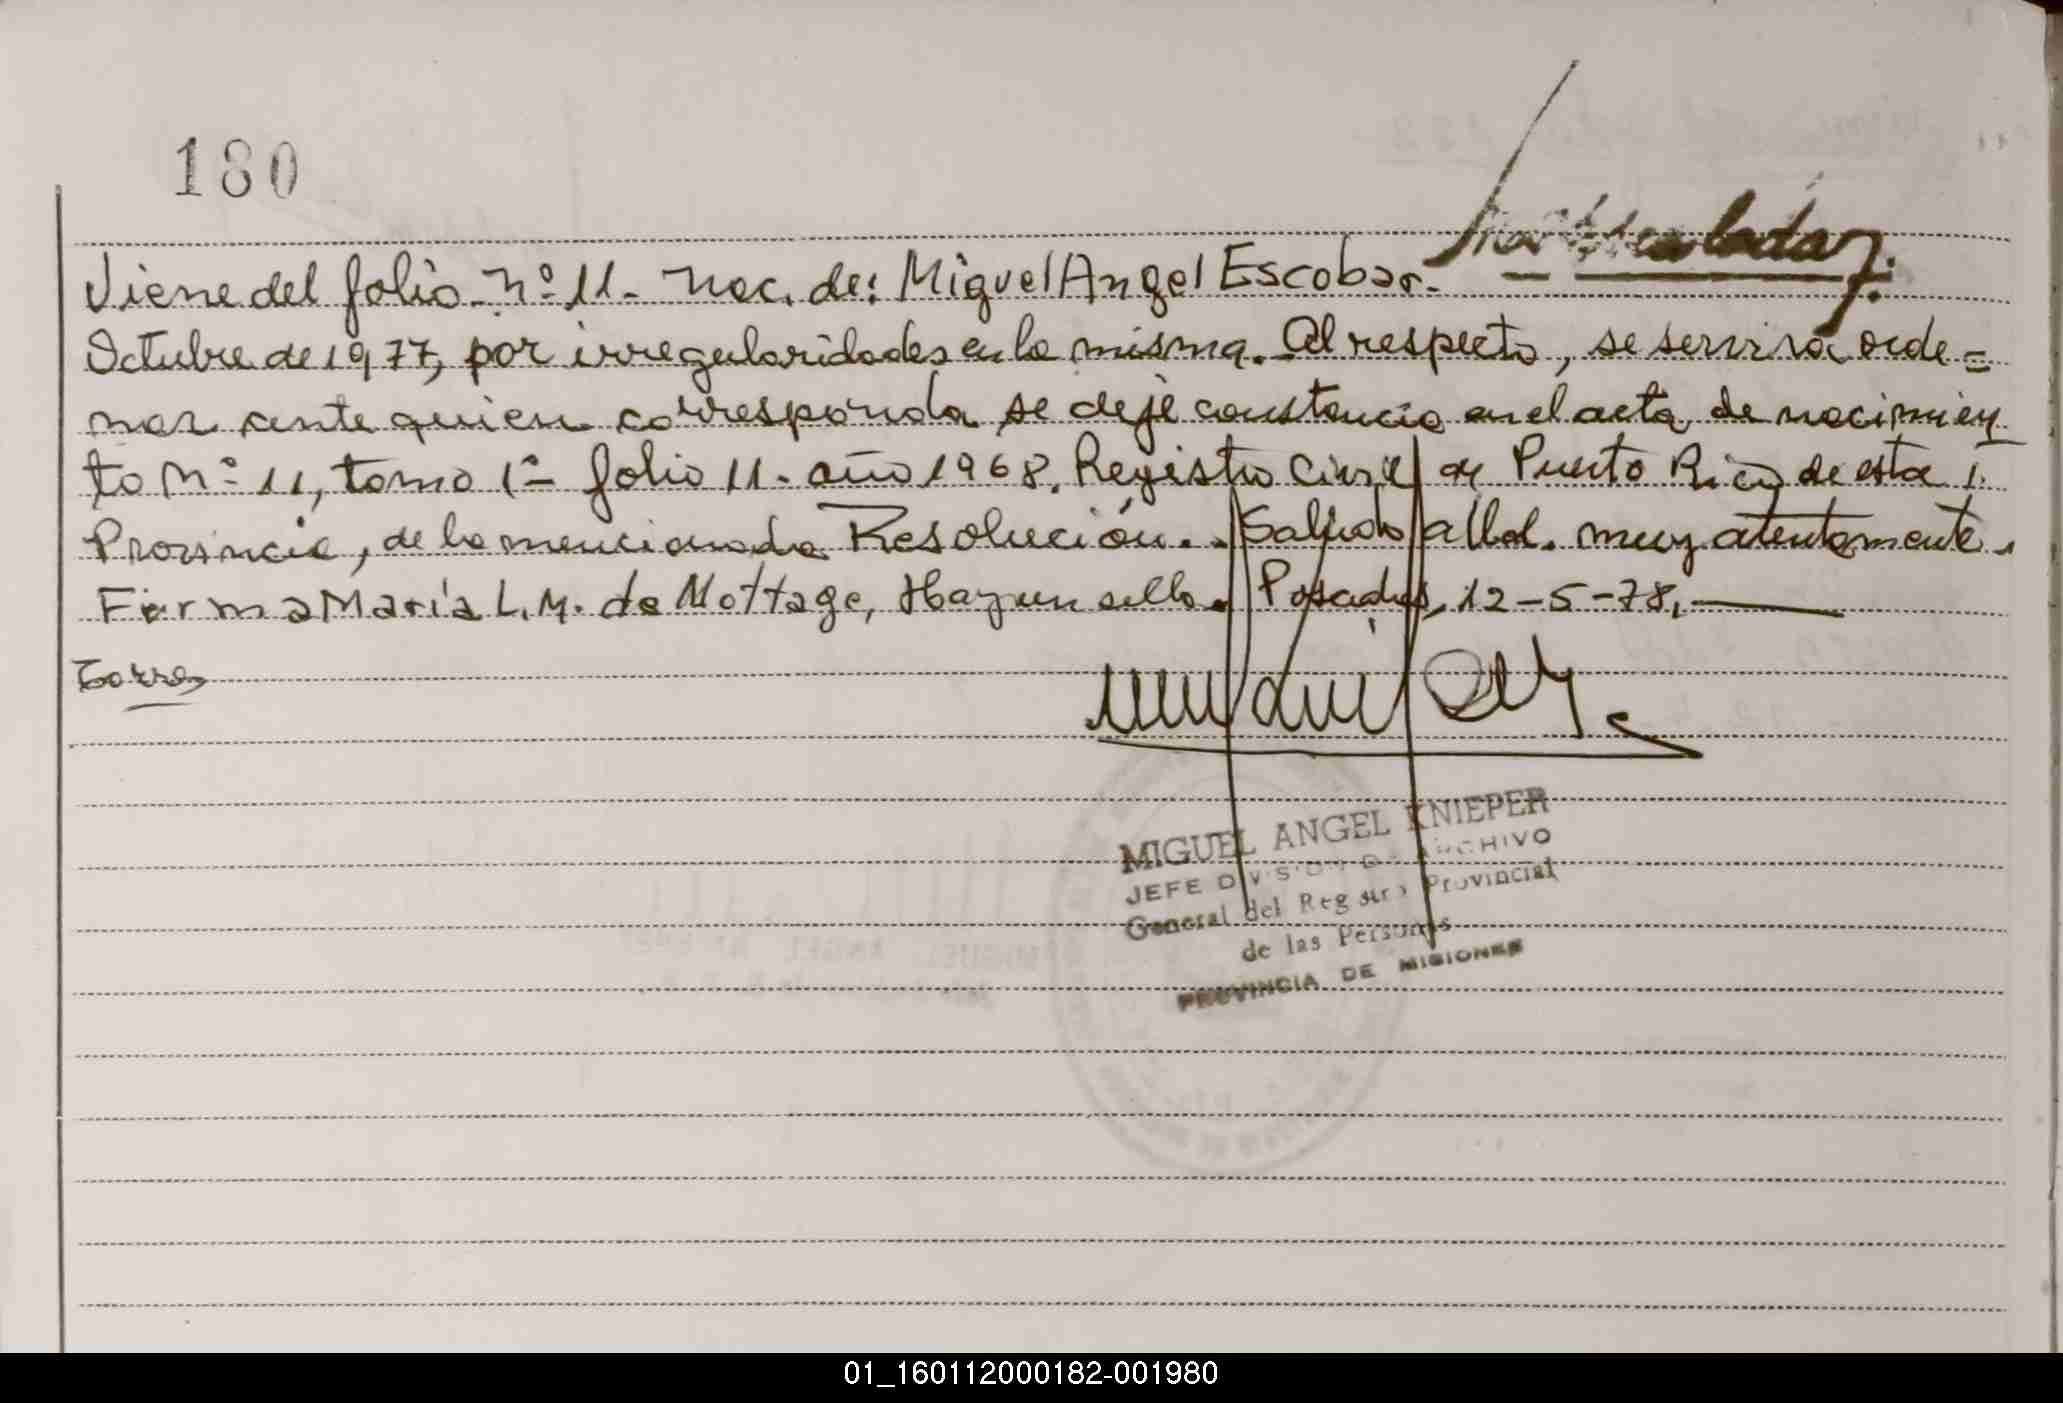 180
Viene del folio - Nº 11 - Nac. de: Miguel Angel Escobar.
Octubre de 1977, por irregularidades en la misma. Al respecto, se servirá orde=
nar ante quien corresponda se deje constancia en el acta de nacimien
to Nº 11, tomo 1º - folio 11 - año 1968. Registro Civil de Puerto Rico de esta
Provincia, de la mencionada Resolución. . Saludo a Ud. muy atentamente.
Firma María L. M. de Mottage, Hay un sello. Posadas, 12-5-78.
Torres
MIGUEL ANGEL KNIEPER
JEFE DIVISION DE ARCHIVO
General del Registro Provincial
de las Personas
PROVINCIA DE MISIONES
01_160112000182-001980